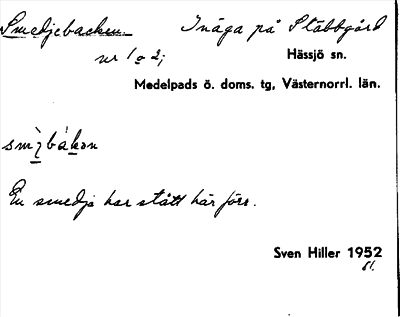 Smedjebacken Inäga på Stabbgård
nr 1 o 2;
Hässjö sn.
Medelpads ö. doms. tg, Västernorrl. län.
En smedja har stått här förr.
Sven Hiller 1952